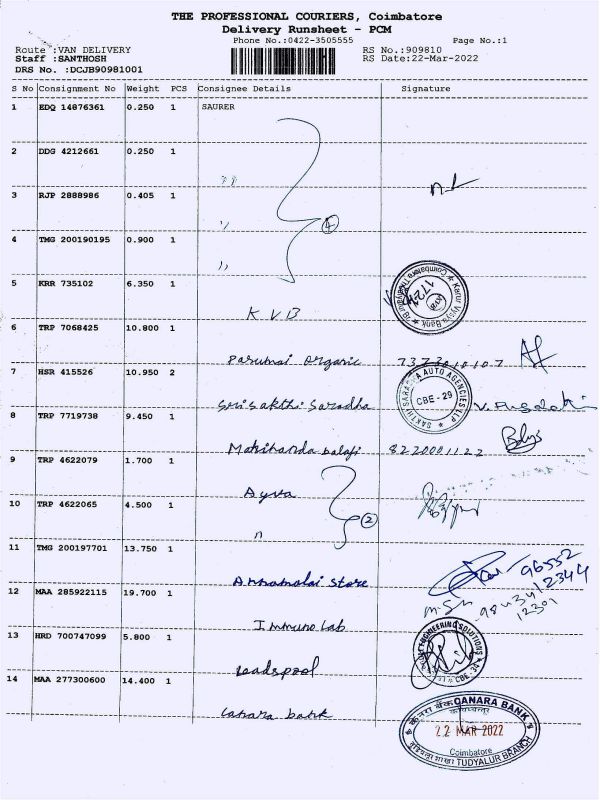 THE PROFESSIONAL COURIERS, Coimbatore
Delivery Runsheet - PCM
Phone No.:0422-3505555 Page No.:1
Route :VAN DELIVERY RS No.:909810
Staff :SANTHOSH RS Date:22-Mar-2022
DRS No. :DCJB90981001
S No Consignment No Weight PCS Consignee Details Signature
1 EDQ 14876361 0.250 1 SAURER
2 DDG 4212661 0.250 1
" 
3 RJP 2888986 0.405 1
" 4
4 TMG 200190195 0.900 1
"
5 KRR 735102 6.350 1
K V B
Karur Vysya Bank
6 TRP 7068425 10.800 1
Organic
7 HSR 415526 10.950 2
SAKTHI SARADHA AUTO AGENCIES LLP CBE - 29
Sri Sakthi Saradha
8 TRP 7719738 9.450 1
balaji 8220001122
9 TRP 4622079 1.700 1
Ayya
10 TRP 4622065 4.500 1
" 2
11 TMG 200197701 13.750 1
Annamalai Store 96552
12344
12 MAA 285922115 19.700 1
12301
Immuno Lab
13 HRD 700747099 5.800 1
ENGINEERING SOLUTIONS
CBE
Leadspool
14 MAA 277300600 14.400 1
Canara bank
केनरा बैंक CANARA BANK
22 MAR 2022
Coimbatore
TUDYALUR BRANCH